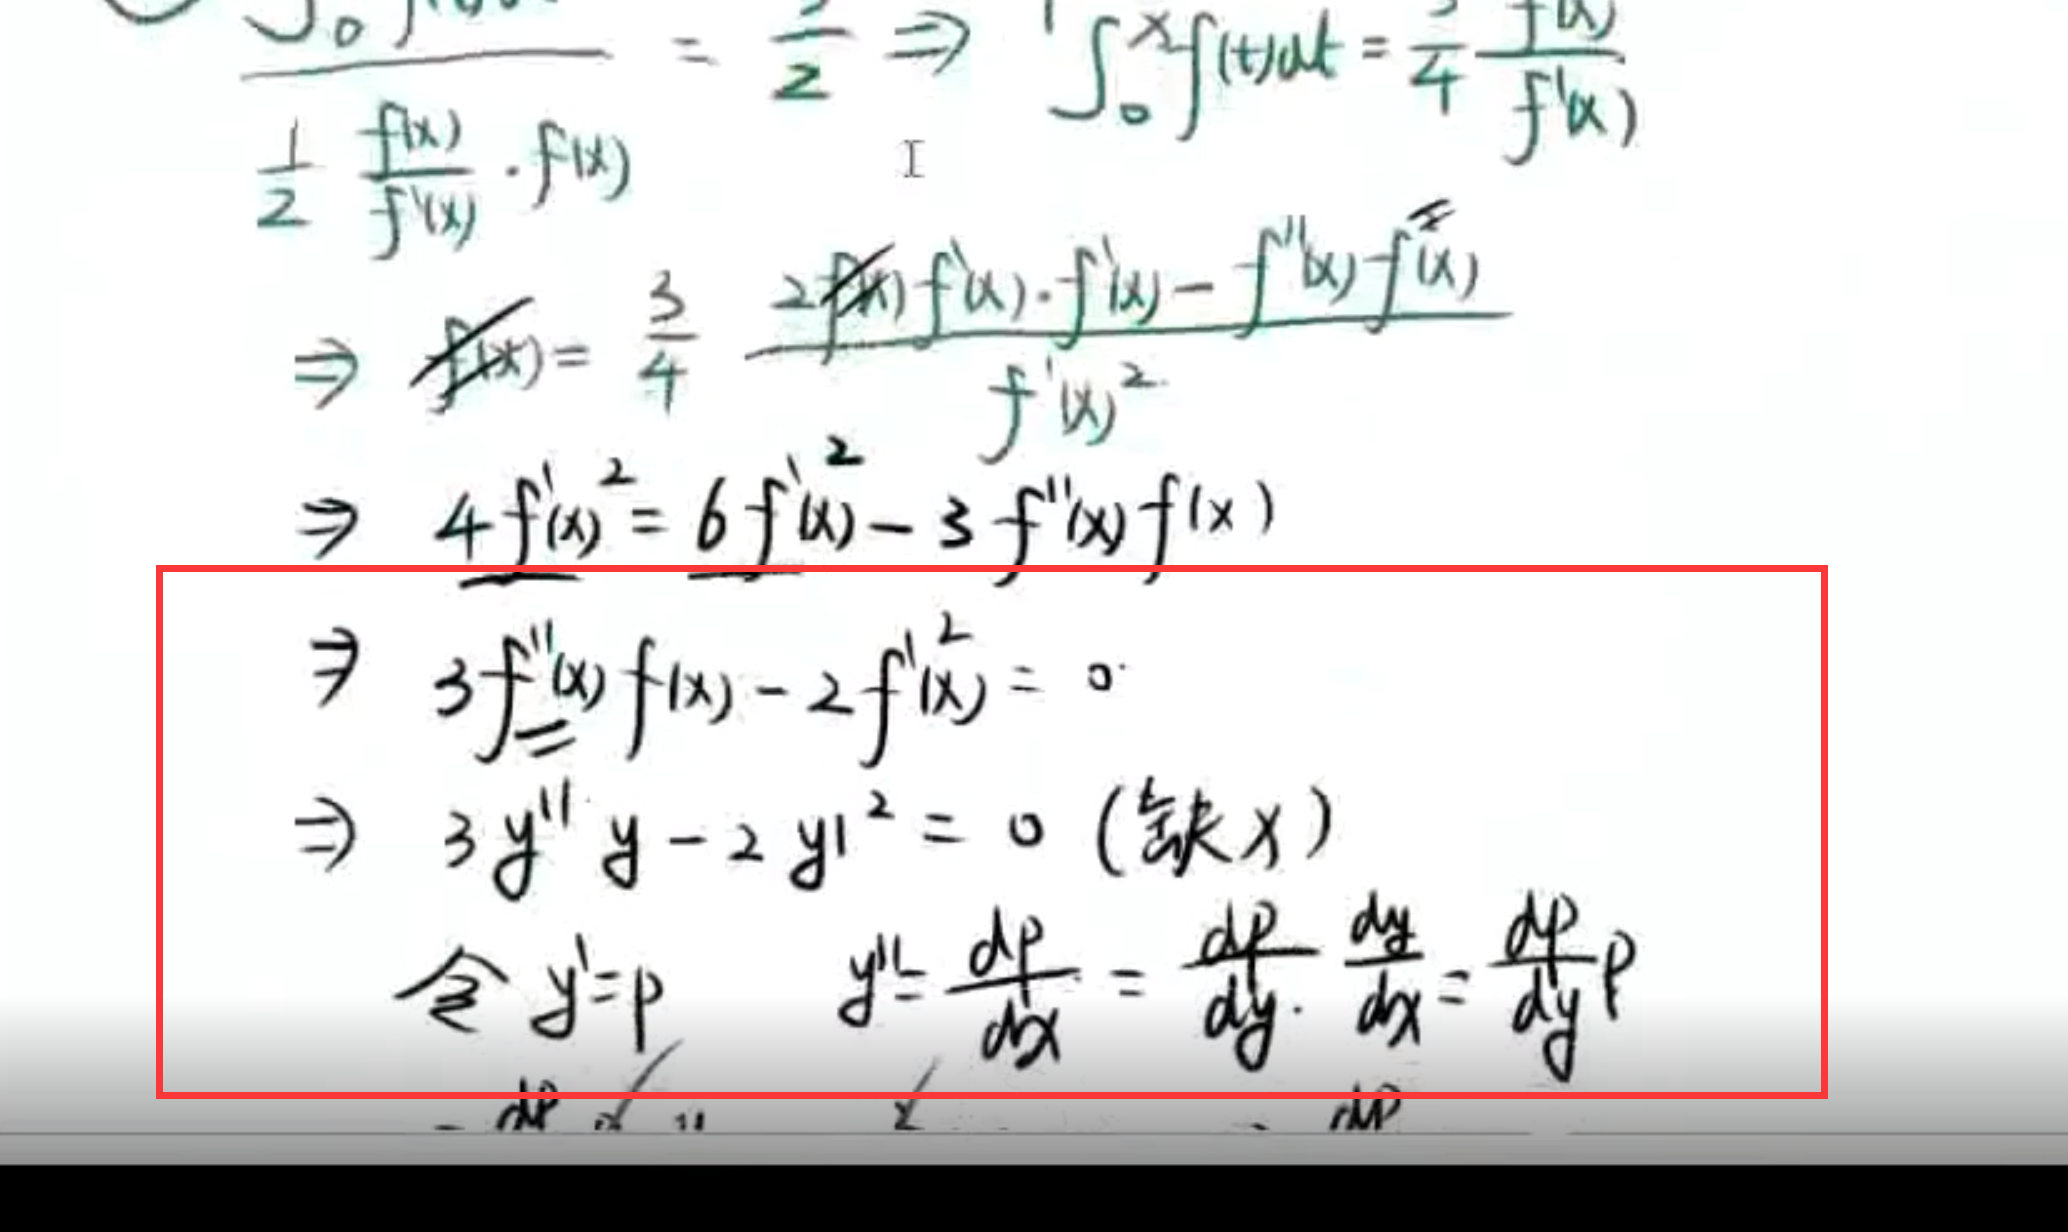 = 3/2 ⇒ ∫₀ˣ f(t)dt = 3/4 f(x)/f'(x)
1/2 f(x)/f'(x) · f(x)
⇒ f(x) = 3/4 (2f(x)f'(x)·f'(x) − f''(x)f²(x))/f'(x)²
⇒ 4f'(x)² = 6f'(x)² − 3f''(x)f(x)
⇒ 3f''(x)f(x) − 2f'(x)² = 0
⇒ 3y''y − 2y'² = 0 (缺x)
令 y'=p y''= dp/dx = dp/dy · dy/dx = dp/dy p